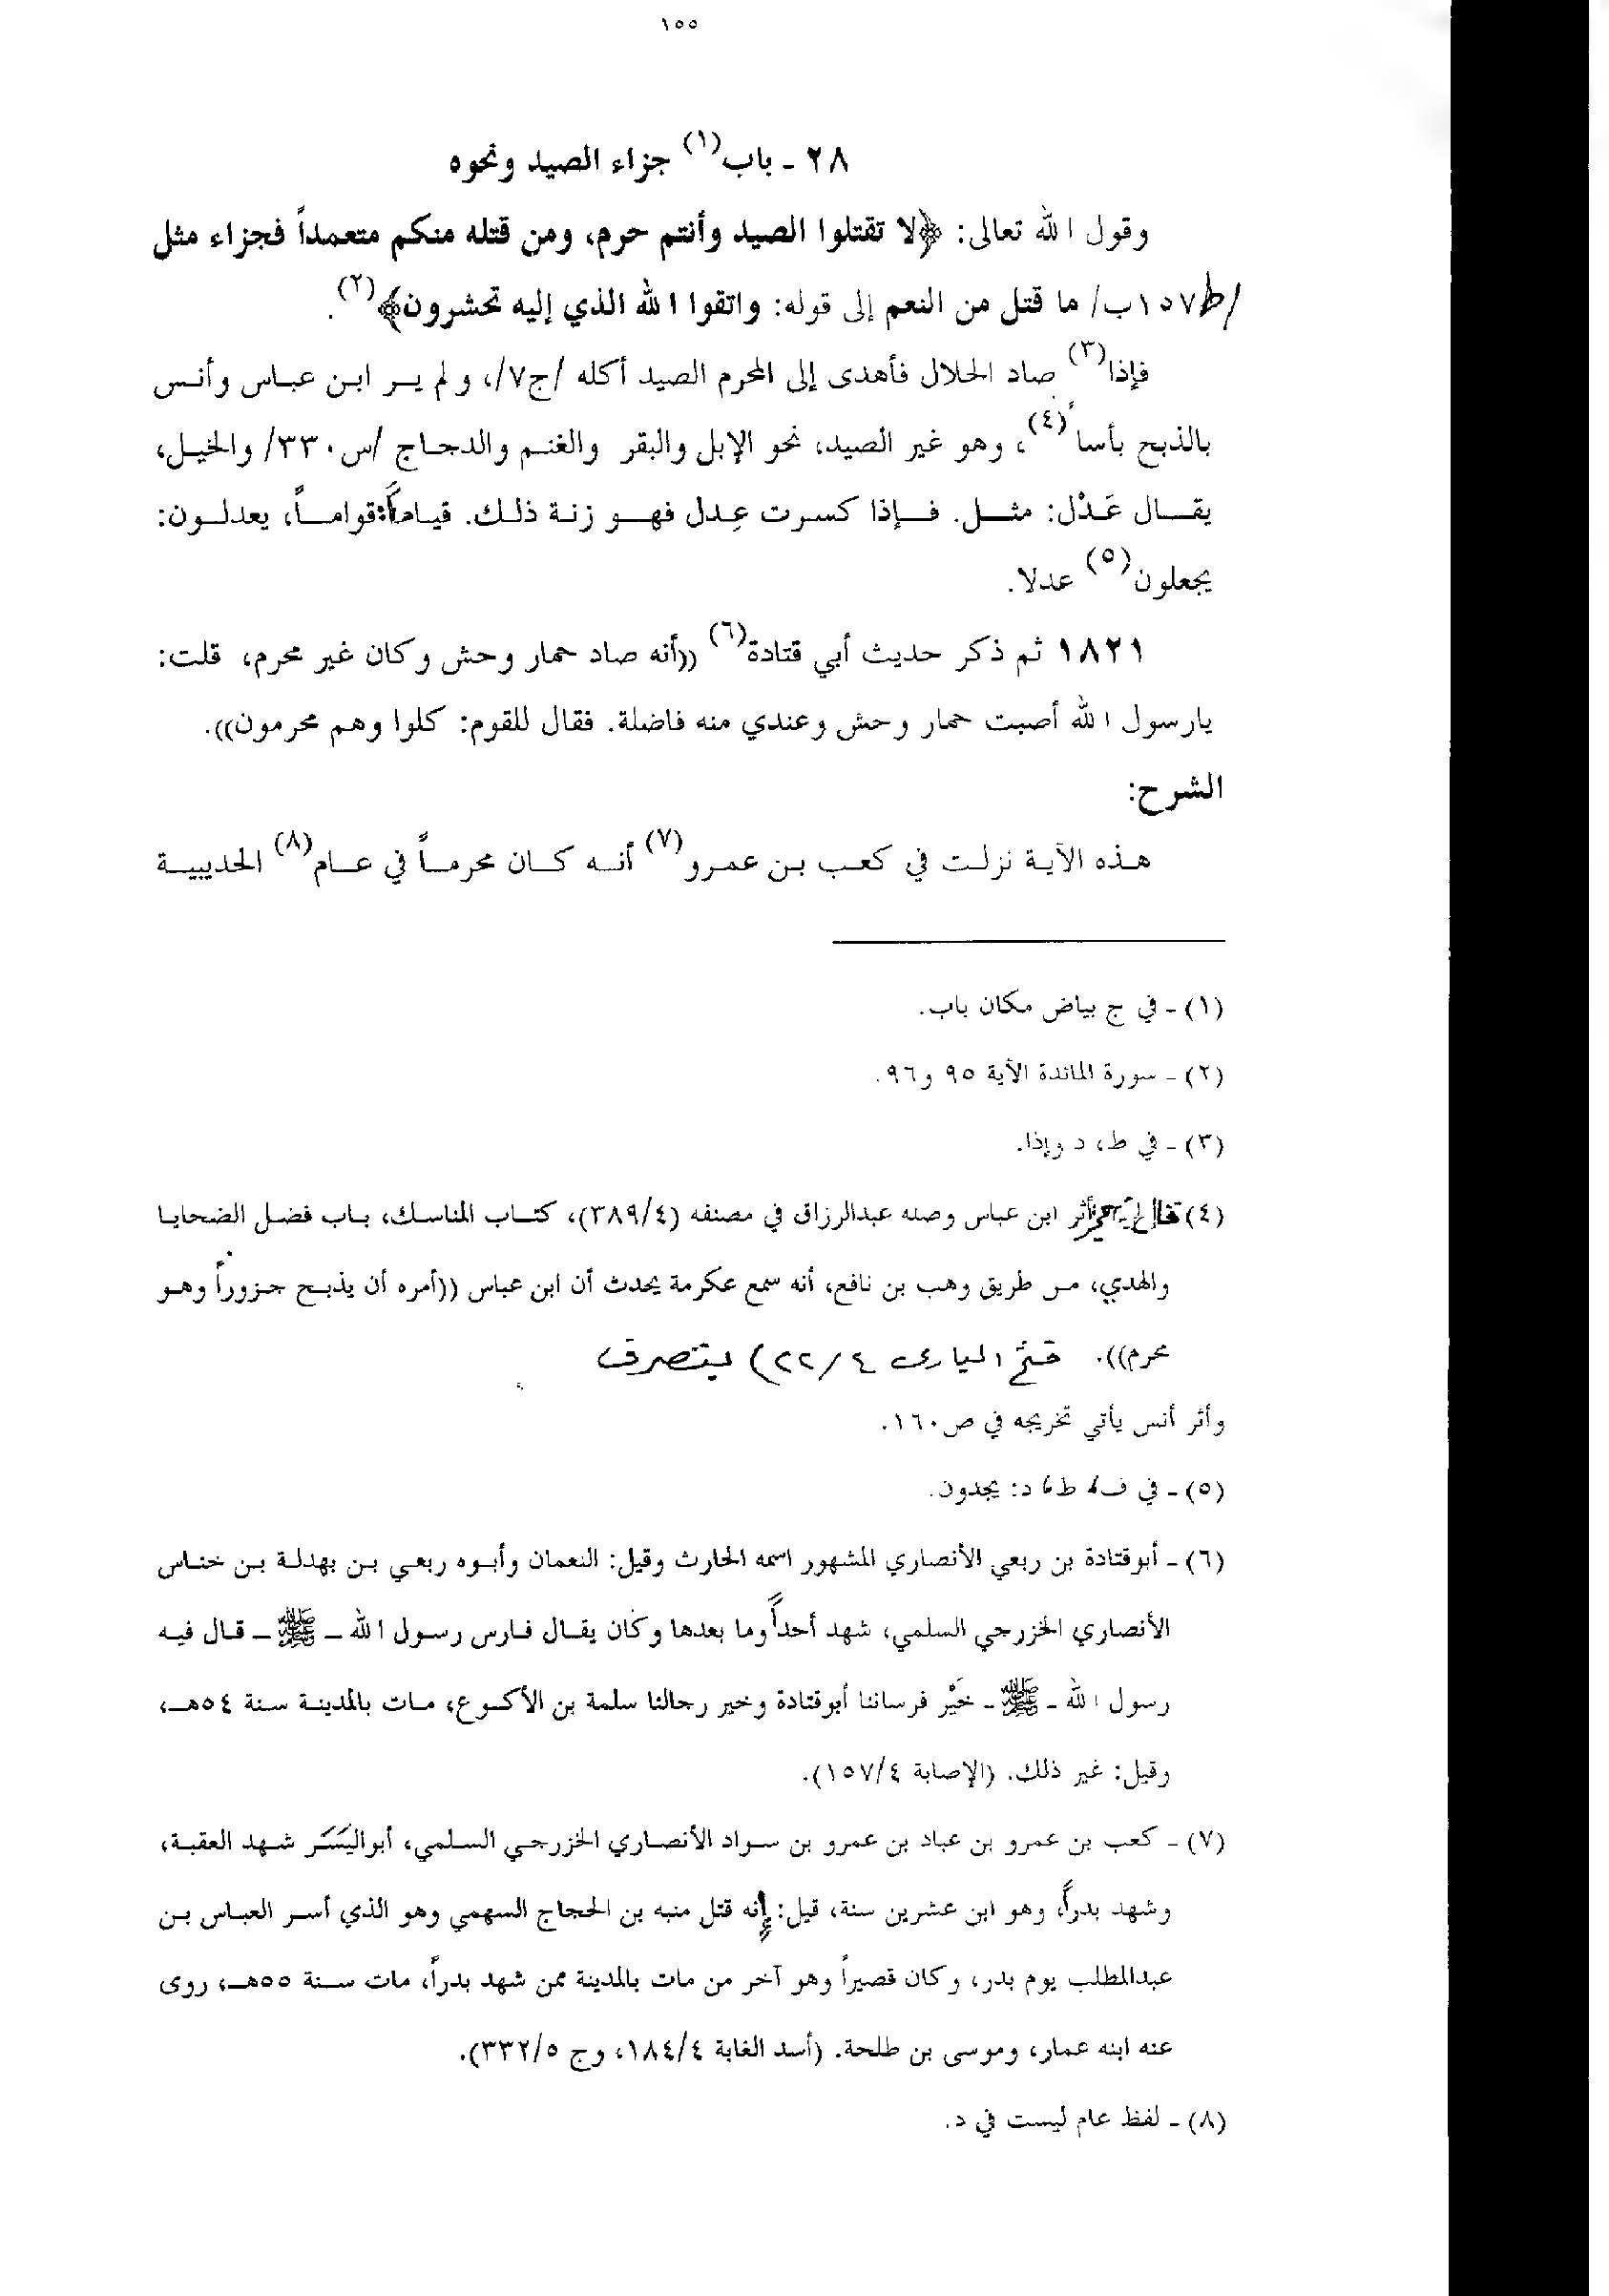 ١٥٥
٢٨ - باب(١) جزاء الصيد ونحوه
وقول الله تعالى: ﴿لا تقتلوا الصيد وأنتم حرم، ومن قتله منكم متعمداً فجزاء مثل
/ط١٥٧ب/ ما قتل من النعم إلى قوله: واتقوا الله الذي إليه تحشرون﴾(٢).
فإذا(٣) صاد الحلال فأهدى إلى المحرم الصيد أكله /ج٧/، ولم يـر ابـن عبـاس وأنـس
بالذبح بأساً(٤)، وهو غير الصيد، نحو الإبل والبقر والغنـم والدجـاج /س٣٣٠/ والخيـل،
يقـال عَـدْل: مثـل. فـإذا كسـرت عِـدل فهـو زنـة ذلـك. قيـاماً: قوامـاً، يعدلـون:
يجعلون(٥) عدلا.
١٨٢١ ثم ذكر حديث أبي قتادة(٦) ((أنه صاد حمار وحش وكان غير محرم، قلت:
يارسول الله أصبت حمار وحش وعندي منه فاضلة. فقال للقوم: كلوا وهم محرمون)).
الشرح:
هـذه الآيـة نزلـت في كعـب بـن عمـرو(٧) أنـه كـان محرمـاً في عـام(٨) الحديبيـة
(١) - في ج بياض مكان باب.
(٢) - سورة المائدة الآية ٩٥ و٩٦.
(٣) - في ط، د وإذا.
(٤) أثر ابن عباس وصله عبدالرزاق في مصنفه (٣٨٩/٤)، كتـاب المناسـك، بـاب فضـل الضحايـا
والهدي، مـن طريق وهب بن نافع، أنه سمع عكرمة يحدث أن ابن عباس ((أمره أن يذبـح جـزوراً وهـو
محرم)). فتح الباري ٤/٢٢) بتصرف
وأثر أنس يأتي تخريجه في ص١٦٠.
(٥) - في ف، ط، د: يجدون.
(٦) - أبوقتادة بن ربعي الأنصاري المشهور اسمه الحارث وقيل: النعمان وأبـوه ربعـي بـن بهدلـة بـن خنـاس
الأنصاري الخزرجي السلمي، شهد أحداً وما بعدها وكان يقـال فـارس رسـول الله ـ ﷺ ـ قـال فيـه
رسول الله ـ ﷺ ـ خَيْر فرساننا أبوقتادة وخير رجالنا سلمة بن الأكـوع، مـات بالمدينـة سنة ٥٤هـ،
وقيل: غير ذلك. (الإصابة ١٥٧/٤).
(٧) - كعب بن عمرو بن عباد بن عمرو بن سـواد الأنصـاري الخزرجـي السـلمي، أبواليَسَر شـهد العقبـة،
وشهد بدراً، وهو ابن عشرين سنة، قيل: إنه قتل منبه بن الحجاج السهمي وهو الذي أسـر العبـاس بـن
عبدالمطلب يوم بدر، وكان قصيراً وهو آخر من مات بالمدينة ممن شهد بدراً، مات سـنة ٥٥هـ، روى
عنه ابنه عمار، وموسى بن طلحة. (أسد الغابة ١٨٤/٤، وج ٣٣٢/٥).
(٨) - لفظ عام ليست في د.